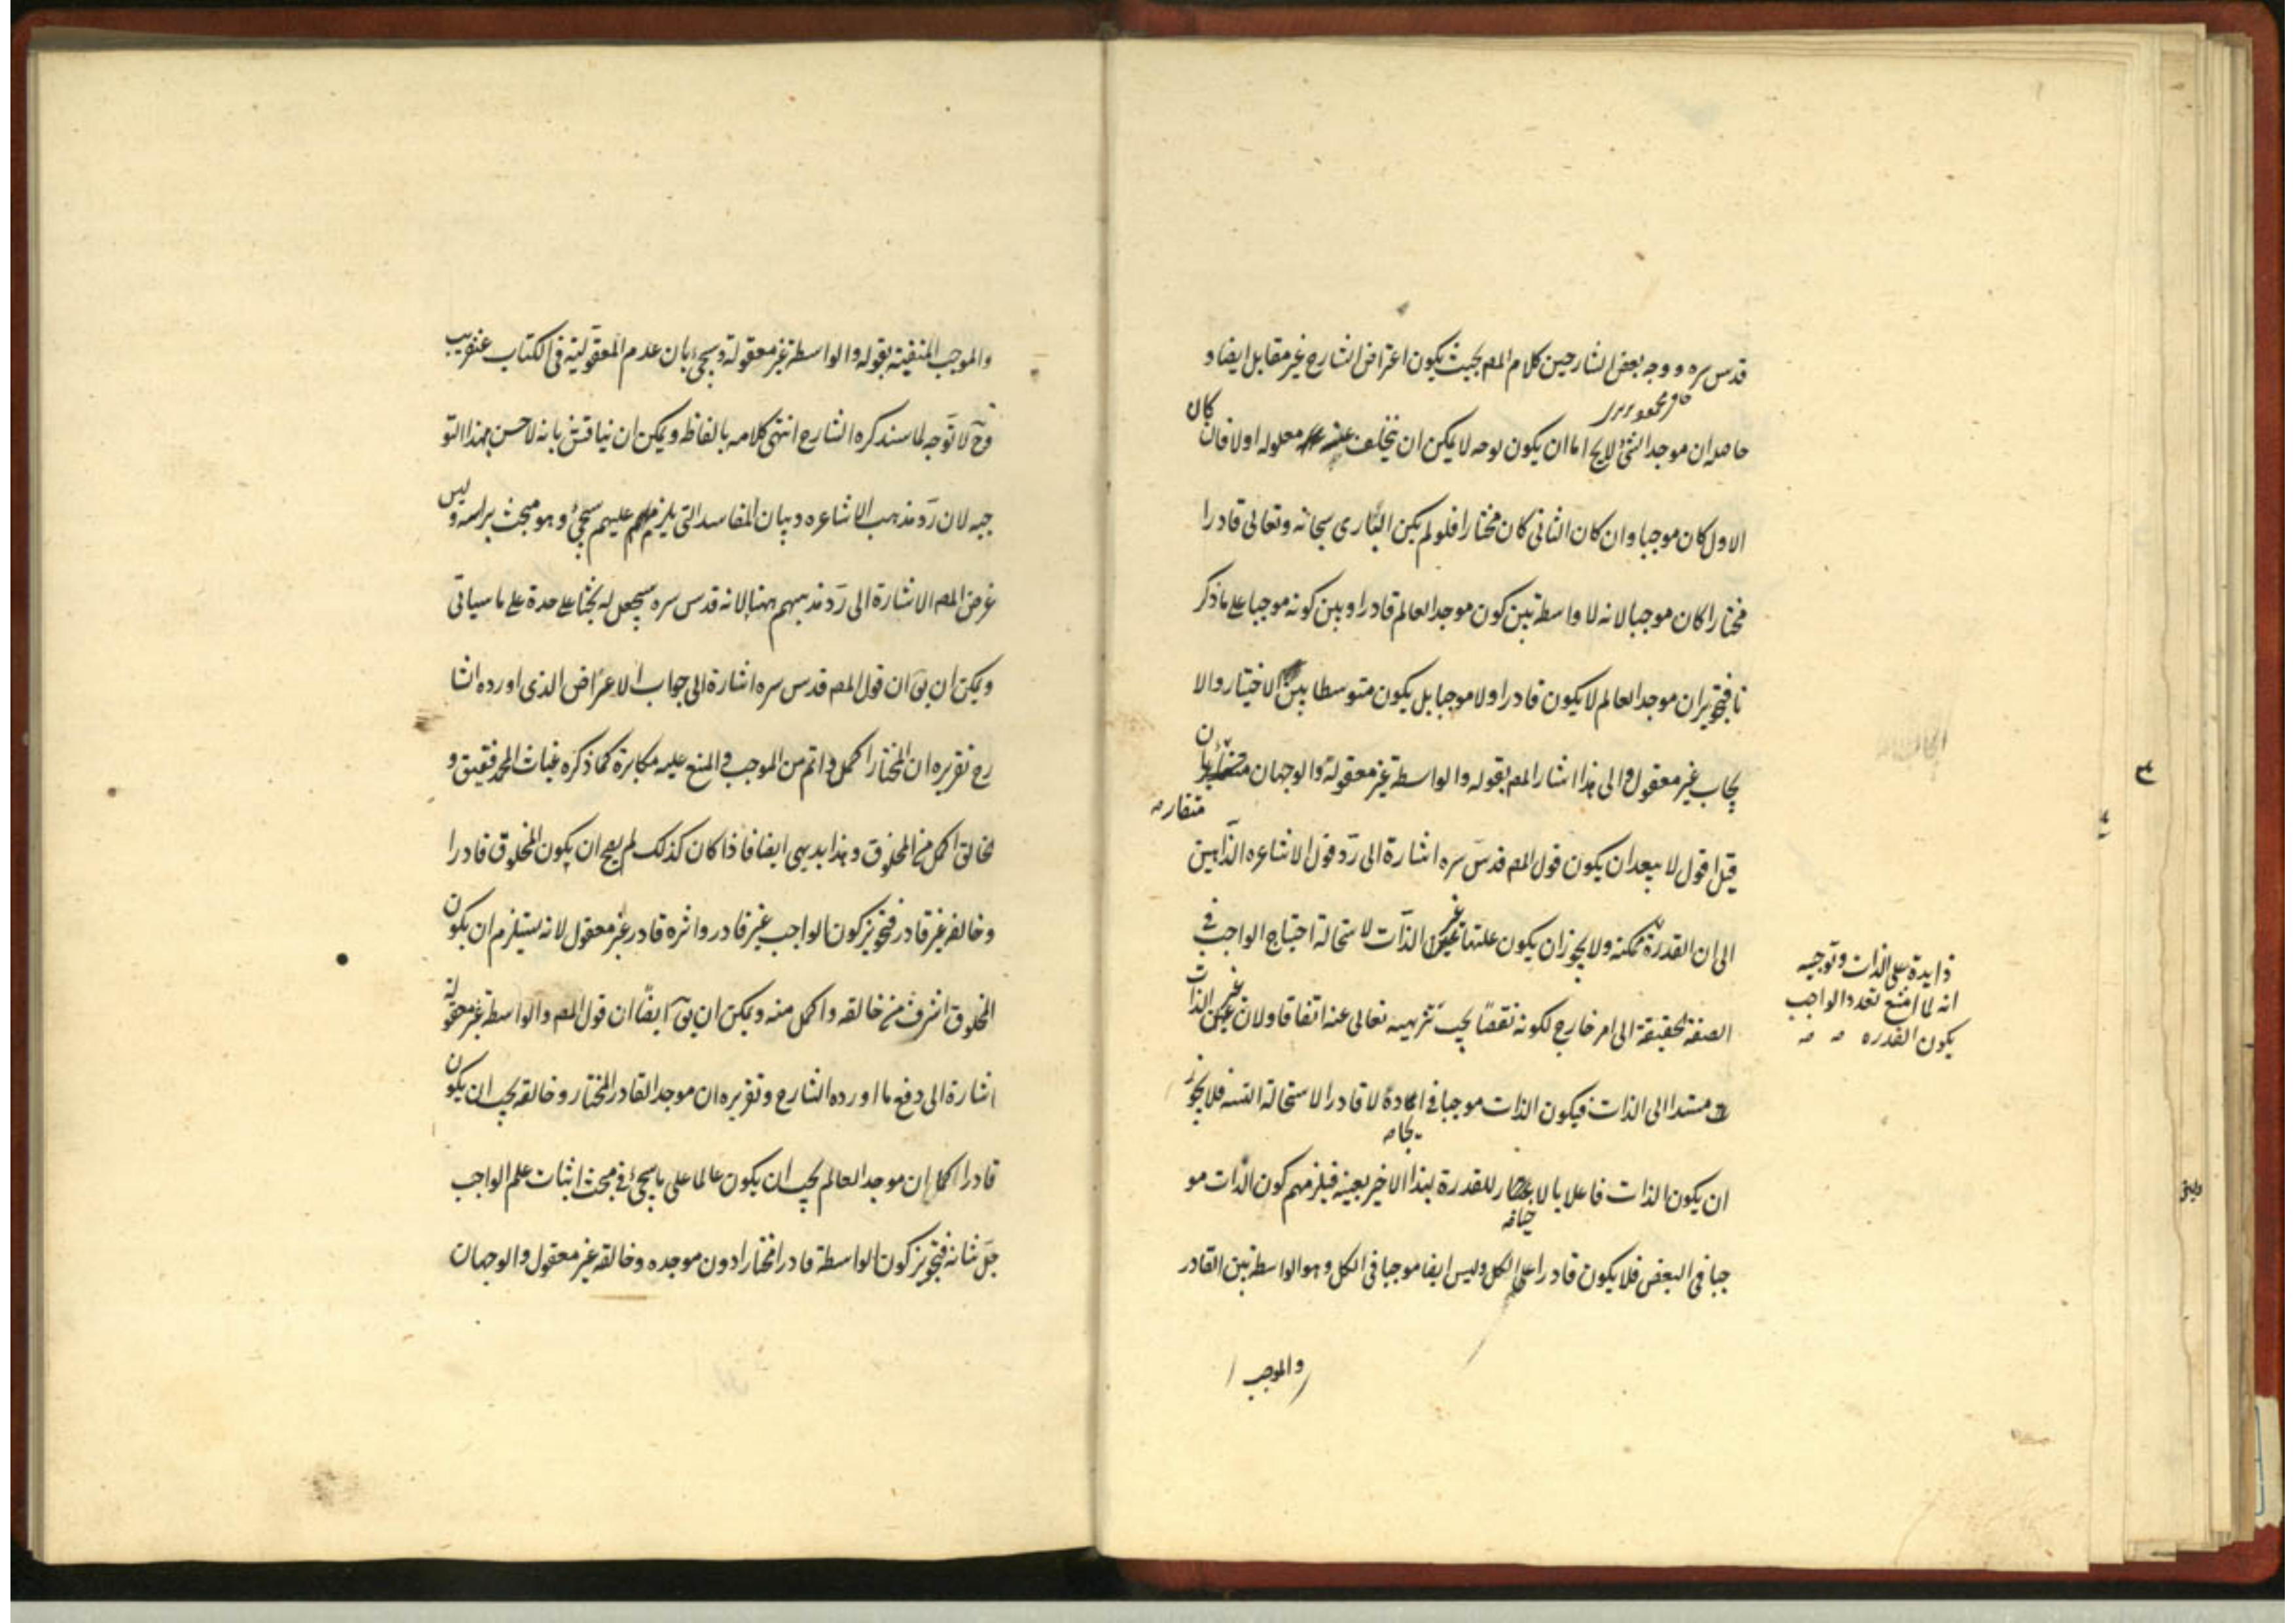 قدس سره و وجه بعض الشارحين كلام المصـ بحيث يكون اعتراض الشارح غير مقابل ايضا و
حاصله ان موجد الشئ لايخ اما ان يكون لوجه لا يمكن ان يتخلف عنه معلوله اولا فان كان
الاول كان موجبا وان كان الثانى كان مختارا فلو لم يكن البارى سبحانه وتعالى قادرا
مختارا كان موجبا لانه لا واسطة بين كون موجد العالم قادرا وبين كونه موجبا على ما ذكر
نا فتجويز ان موجد العالم لا يكون قادرا ولا موجبا بل يكون متوسطا بين الاختيار والا
يجاب غير معقول والى هذا اشار المصـ بقوله والواسطة غير معقولة والوجهان
متقاربان
قيل اقول لا يبعد ان يكون قول المصـ قدس سره اشارة الى رد قول الاشاعره الذاهبين
الى ان القدرة ممكنه ولا يجوز ان يكون علتها غير الذات لاستحالة احتياج الواجب فى
الصفة الحقيقة الى امر خارج لكونه نقصا يجب تنزيهه تعالى عنه اتفاقا ولان غير الذات
مستند الى الذات فيكون الذات موجبا فى لا قادرا لاستحالة التسـ فلا يجوز
ان يكون الذات فاعلا بالا للقدرة لهذا الاخير بعينه فيلزمهم كون الذات مو
جبا فى البعض فلا يكون قادرا على الكل وليس ايضا موجبا فى الكل وهو الواسطة بين القادر
والموجب
زايدة على الذات وتوجيه
انه لما امتنع تعدد الواجب
يكون القدره
والموجب المنفية بقوله والواسطة غير معقولة وسيجئ بيان عدم المعقولية فى الكتاب عنقريب
وح لا توجه لما سنذكره الشارح انتهى كلامه بالفاظه ويمكن ان يناقش بانه لا حسن بهذا التو
جيه لان رد مذهب الاشاعره وبيان المفاسد التى يلزم عليهم سيجئ وهو مبحث براسه وليس
غرض المصـ الاشارة الى رد مذهبهم ههنا لانه قدس سره سيجعل له بحثا على حدة على ما سياتى
ويمكن ان يق ان قول المصـ قدس سره اشارة الى جواب الاعتراض الذى اورده الشا
رح تقريره ان المختار اكمل واتم من الموجب والمنع عليه مكابرة كما ذكره غياث المحققين و
الخالق اكمل من المخلوق وهذا بديهى ايضا فاذا كان كذلك لم يصح ان يكون المخلوق قادرا
وخالقه غير قادر فتجويز كون الواجب غير قادر واثره قادر غير معقول لانه يستلزم ان يكون
المخلوق اشرف من خالقه واكمل منه ويمكن ان يق ايضا ان قول المصـ والواسطة غير معقولة
اشارة الى دفع ما اورده الشارح وتقريره ان موجد القادر المختار وخالقه يجب ان يكون
قادرا كما ان موجد العالم يجب ان يكون عالما على ما سيجئ فى مبحث اثبات علم الواجب
جل شانه فتجويز كون الواسطة قادرا مختارا دون موجده وخالقه غير معقول والوجهان